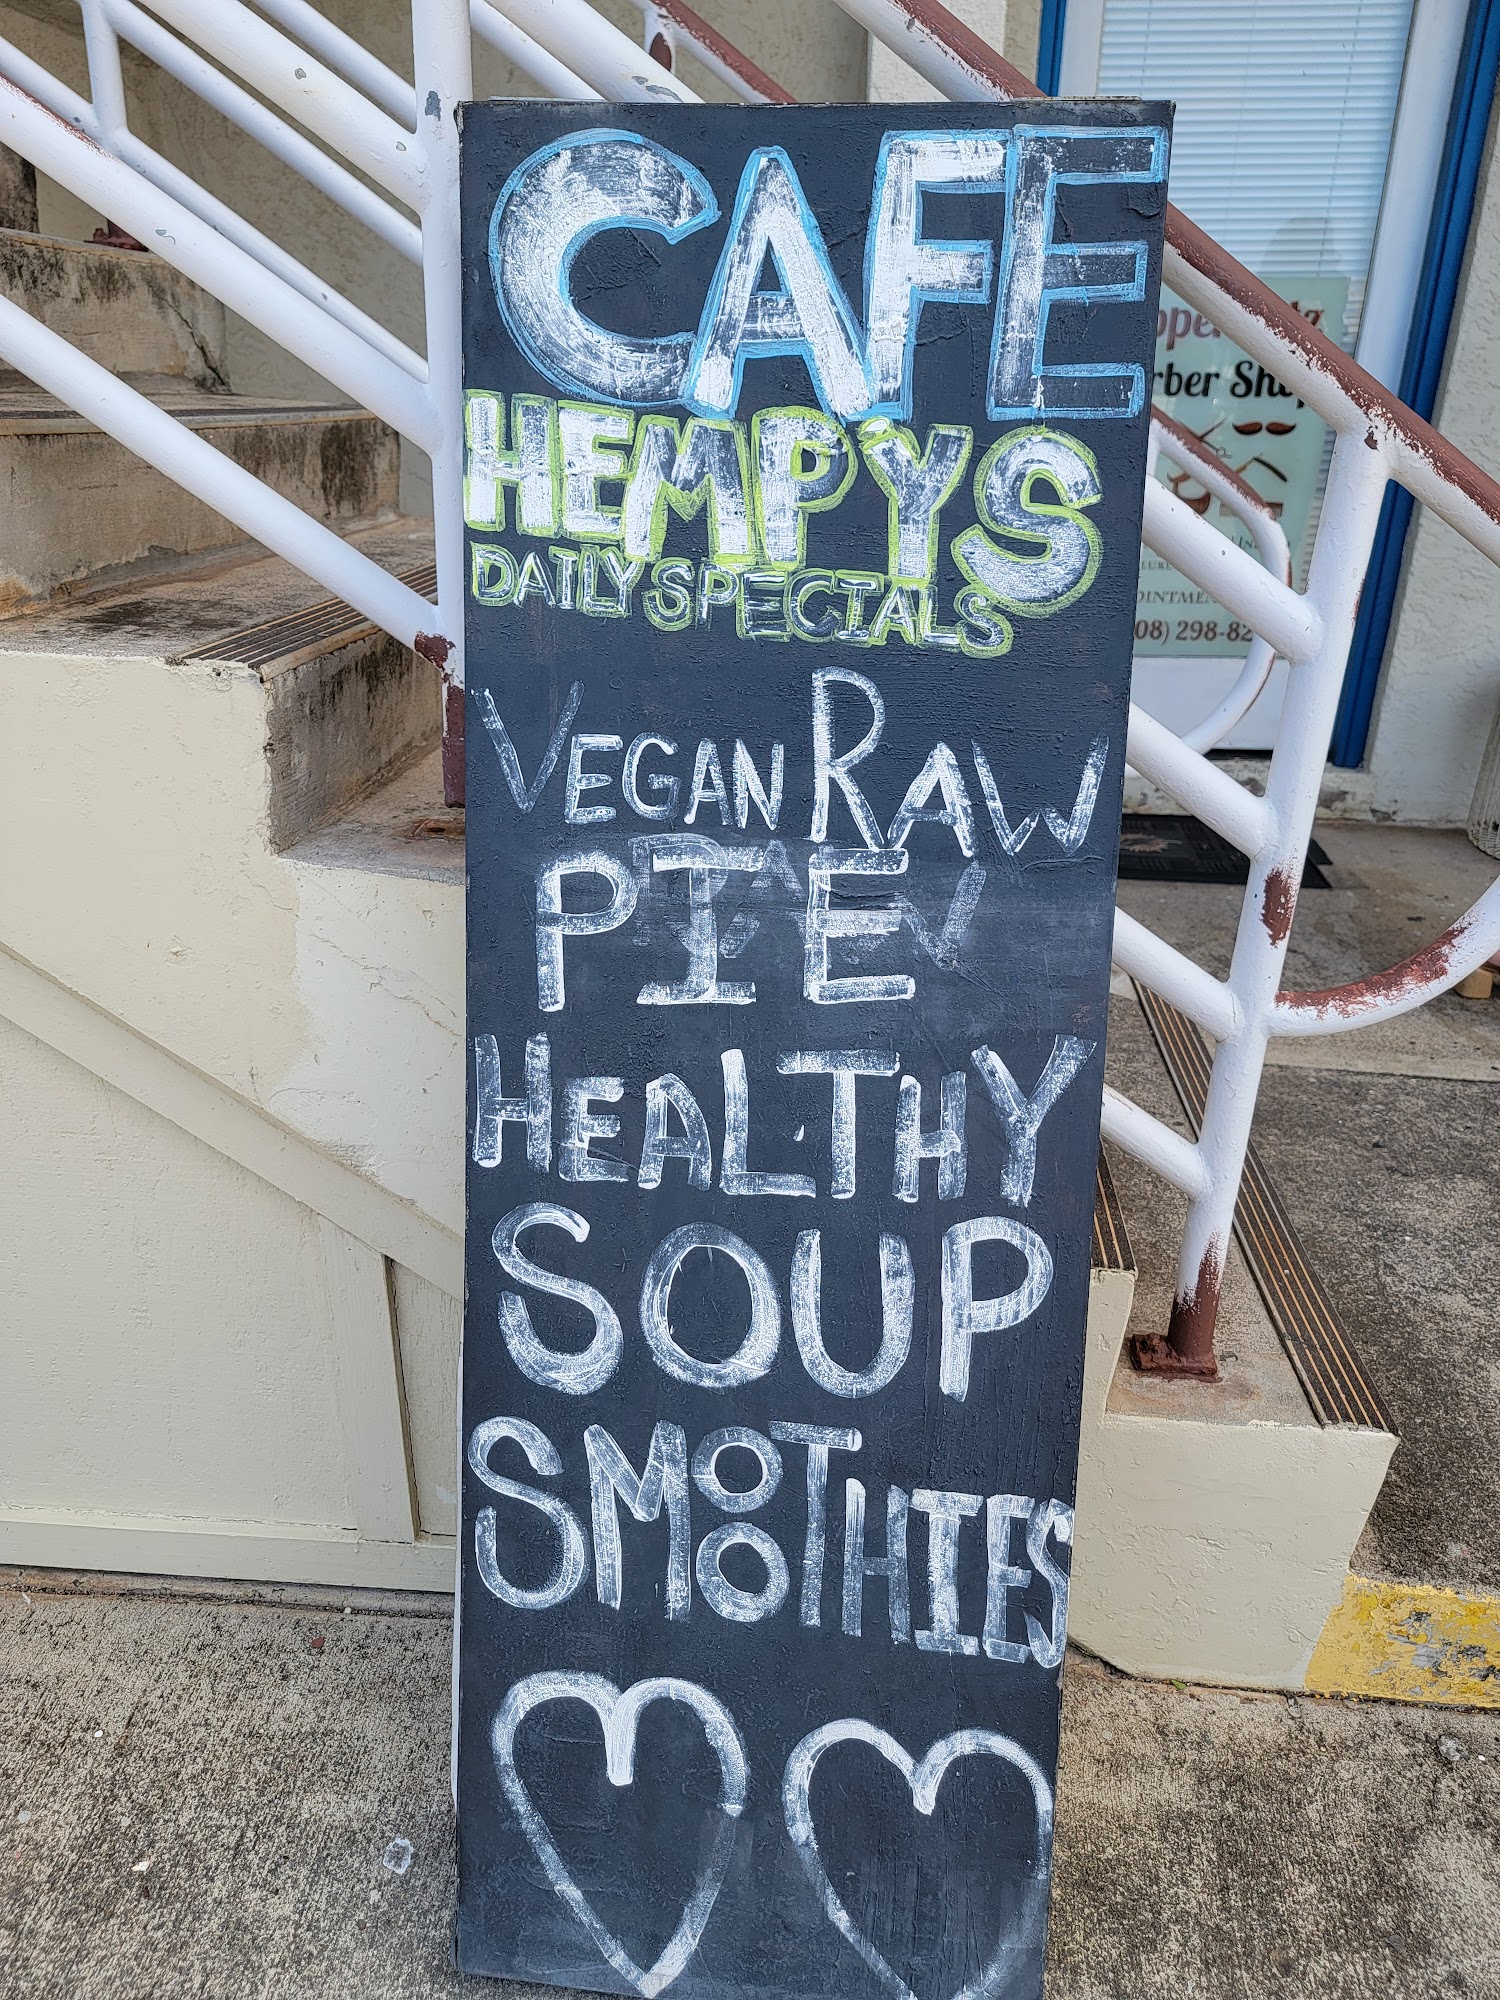 CAFE
HEMPYS
DAILY SPECIALS
VEGAN RAW
PIE
HEALTHY
SOUP
SMOOTHIES
298-82